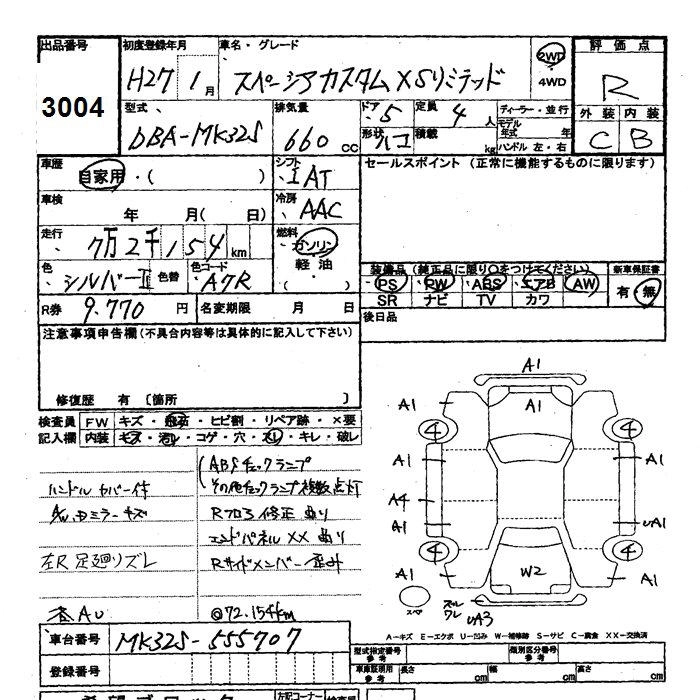 出品番号
3004
初度登録年月
H27 1月
車名・グレード
スペーシアカスタムXSリミテッド
2WD
4WD
評価点
R
外装 内装
C B
型式
DBA-MK32S
排気量
660 cc
ドア 5
形状 ハコ
定員 4人
積載 kg
ディーラー・並行
モデル年式 年
ハンドル 左・右
車歴
自家用・( )
シフト
IAT
車検
年 月( 日)
冷房
AAC
走行
7万2千154km
燃料
ガソリン
軽油
( )
色
シルバーII
色替
色コード
A7R
R券 9.770円
名変期限 月 日
セールスポイント (正常に機能するものに限ります)
装備品 (純正品に限り○をつけてください)
PS PW ABS エアB AW
SR ナビ TV カワ
新車保証書
有・無
後日品
注意事項申告欄(不具合内容等は具体的に記入して下さい)
修復歴 有 〔箇所 〕
検査員記入欄
FW キズ・飛石・ヒビ割・リペア跡・×要
内装 キズ・汚レ・コゲ・穴・スレ・キレ・破レ
ABSチェックランプ
その他チェックランプ複数点灯
ハンドルカバー付
A/W.Dミラーキズ
Rフロア修正 ぬり
エンドパネルXX ぬり
左R足廻りズレ
Rサイドメンバー歪み
@72.154km
A1
A1
A1
A1
4
4
A1
A1
A4
A1
UA1
4
4
A1
W2
A1
スペア
UA3
A-キズ E-エクボ U-凹み W-補修跡 S-サビ C-腐食 XX-交換済
車台番号
MK32S-555707
登録番号
型式指定番号 参考
類別区分番号 参考
車庫証明用 参考
長さ cm
幅 cm
高さ cm
希望ブロック
左記コーナー